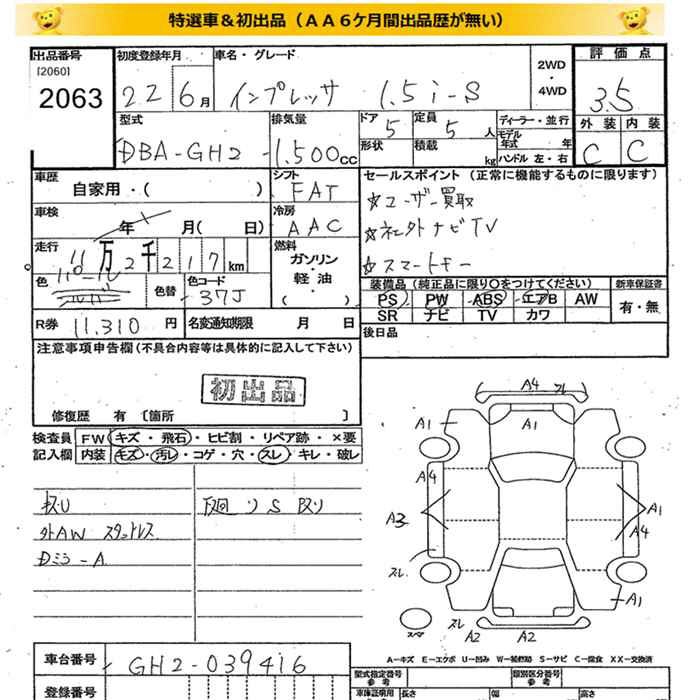 特選車＆初出品（ＡＡ６ケ月間出品歴が無い）
出品番号 初度登録年月 車名・グレード 評価点
[2060]
2063 22 6月 インプレッサ 1.5i-S 2WD・4WD 3.5
型式 排気量 ドア 定員 ディーラー・並行 外装 内装
DBA-GH2 1,500cc 5 5人 モデル年式 年 C C
形状 積載 kg ハンドル 左・右
車歴 シフト セールスポイント（正常に機能するものに限ります）
自家用・（ ） FAT ☆ユーザー買取
車検 冷房
年 月（ 日） AAC ☆社外ナビTV
走行 燃料
11万2千217km ガソリン・軽油・（ ） ☆スマートキー
色 パール 色替 色コード 37J
装備品（純正品に限り〇をつけてください） 新車保証書
PS PW ABS エアB AW 有・無
SR ナビ TV カワ
R券 11,310円 名変通知期限 月 日 後日品
注意事項申告欄（不具合内容等は具体的に記入して下さい）
初出品
修復歴 有〔箇所 〕
検査員 FW キズ・飛石・ヒビ割・リペア跡・×要
記入欄 内装 キズ・汚レ・コゲ・穴・スレ・キレ・破レ
外AW スタットレス
Dミラ-A
A4 スレ
A1 A1
A4
A3 A1
A4
スレ A1
スペア スレ A2 A2
A－キズ E－エクボ U－凹み W－補修跡 S－サビ C－腐食 XX－交換済
車台番号 GH2-039416 型式指定番号 参考 類別区分番号 参考
登録番号 車庫証明用 参考 長さ 幅 高さ